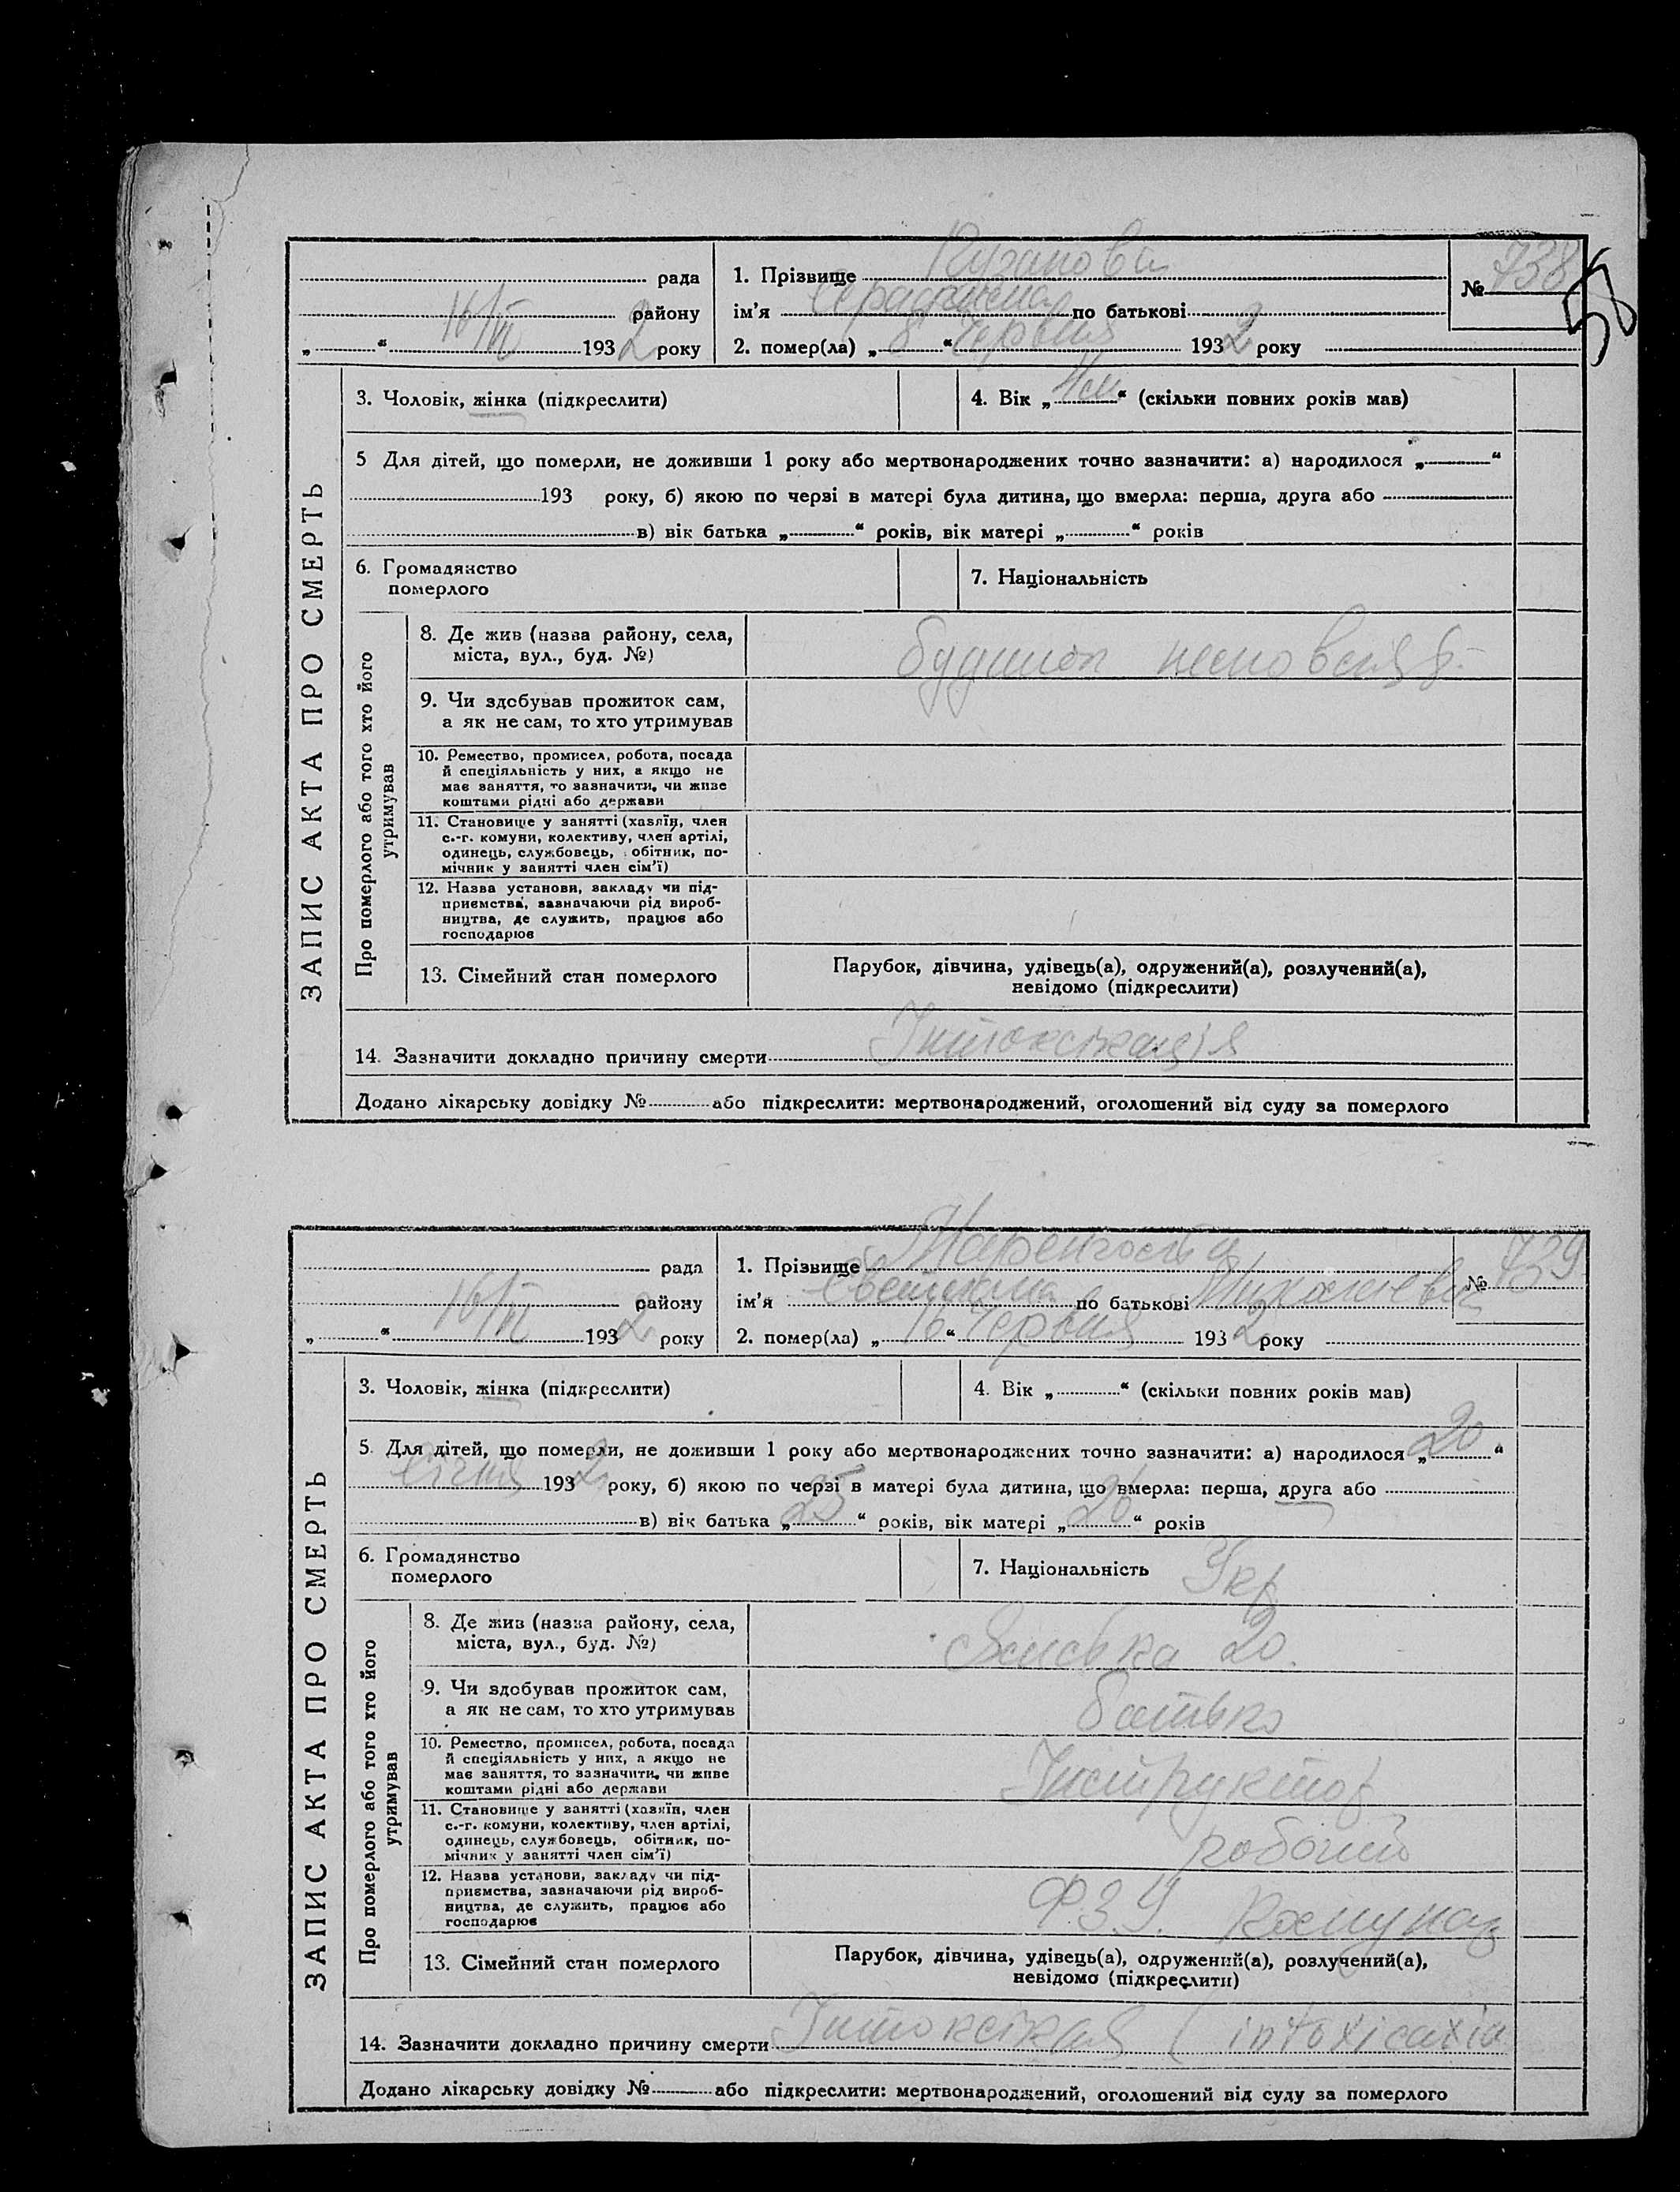 ЗАПИС АКТА ПРО СМЕРТЬ
рада
району
16/VI 1932 року
1. Прізвище
ім'я по батькові
2. помер(ла) „8“ Червня 1932 року
№ 738
58
3. Чоловік, жінка (підкреслити)
4. Вік „11 м“ (скільки повних років мав)
5 Для дітей, що померли, не доживши 1 року або мертвонароджених точно зазначити: а) народилося „ “
193 року, б) якою по черзі в матері була дитина, що вмерла: перша, друга або
в) вік батька „ “ років, вік матері „ “ років
6. Громадянство
померлого
7. Національність
Про померлого або того хто його
утримував
8. Де жив (назва району, села,
міста, вул., буд. №)
будинок
9. Чи здобував прожиток сам,
а як не сам, то хто утримував
10. Ремество, промисел, робота, посада
й спеціяльність у них, а якщо не
має заняття, то зазначити, чи живе
коштами рідні або держави
11. Становище у занятті (хазяїн, член
с.-г. комуни, колективу, член артілі,
одинець, службовець, обітник, по-
мічник у занятті член сім'ї)
12. Назва установи, закладу чи під-
приємства, зазначаючи рід вироб-
ництва, де служить, працює або
господарює
13. Сімейний стан померлого
Парубок, дівчина, удівець(а), одружений(а), розлучений(а),
невідомо (підкреслити)
14. Зазначити докладно причину смерти Інтоксікація
Додано лікарську довідку № або підкреслити: мертвонароджений, оголошений від суду за померлого
ЗАПИС АКТА ПРО СМЕРТЬ
рада
району
16/VI 1932 року
1. Прізвище
ім'я Світлана по батькові
2. помер(ла) „16“ Червня 1932 року
№ 739
3. Чоловік, жінка (підкреслити)
4. Вік „ “ (скільки повних років мав)
5. Для дітей, що померли, не доживши 1 року або мертвонароджених точно зазначити: а) народилося „20“
Січня 1932 року, б) якою по черзі в матері була дитина, що вмерла: перша, друга або
в) вік батька „25“ років, вік матері „26“ років
6. Громадянство
померлого
7. Національність Укр
Про померлого або того хто його
утримував
8. Де жив (назва району, села,
міста, вул., буд. №)
20.
9. Чи здобував прожиток сам,
а як не сам, то хто утримував
батько
10. Ремество, промисел, робота, посада
й спеціяльність у них, а якщо не
має заняття, то зазначити, чи живе
коштами рідні або держави
Інструктор
11. Становище у занятті (хазяїн, член
с.-г. комуни, колективу, член артілі,
одинець, службовець, обітник, по-
мічник у занятті член сім'ї)
робочий
12. Назва установи, закладу чи під-
приємства, зазначаючи рід вироб-
ництва, де служить, працює або
господарює
ФЗУ. Комунар
13. Сімейний стан померлого
Парубок, дівчина, удівець(а), одружений(а), розлучений(а),
невідомо (підкреслити)
14. Зазначити докладно причину смерти
Додано лікарську довідку № або підкреслити: мертвонароджений, оголошений від суду за померлого